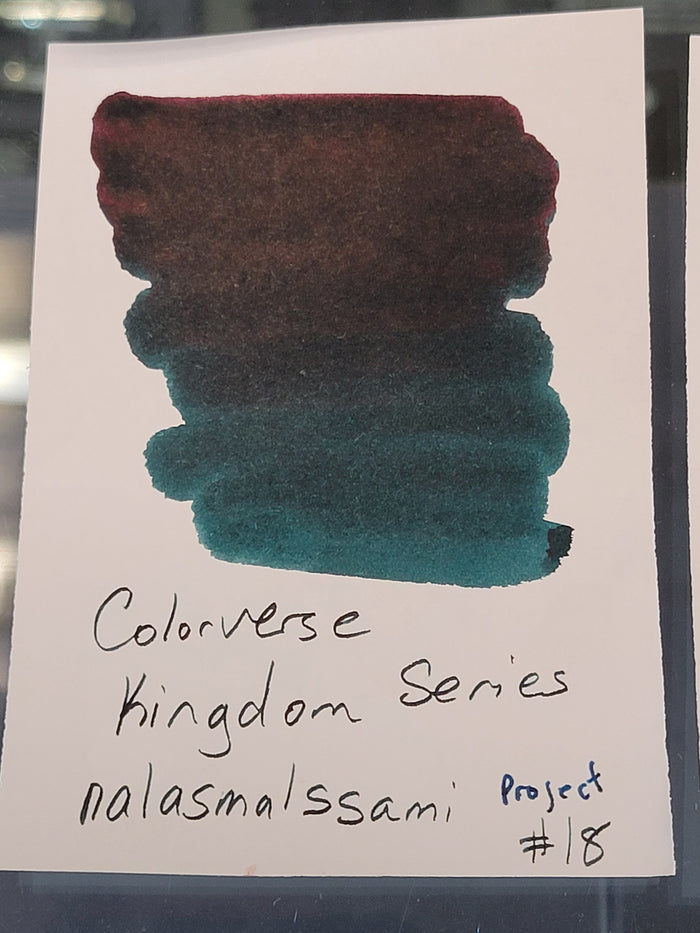 Colorverse
Kingdom Series
nalasmalssami
Project
#18